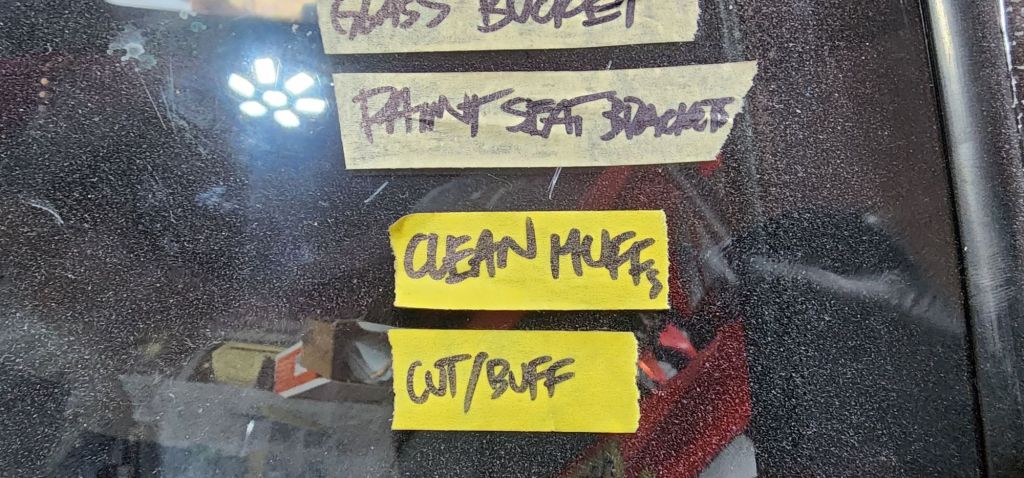 GLASS BUCKET
PAINT SEAT BRACKETS
CLEAN MUFFS
CUT/BUFF